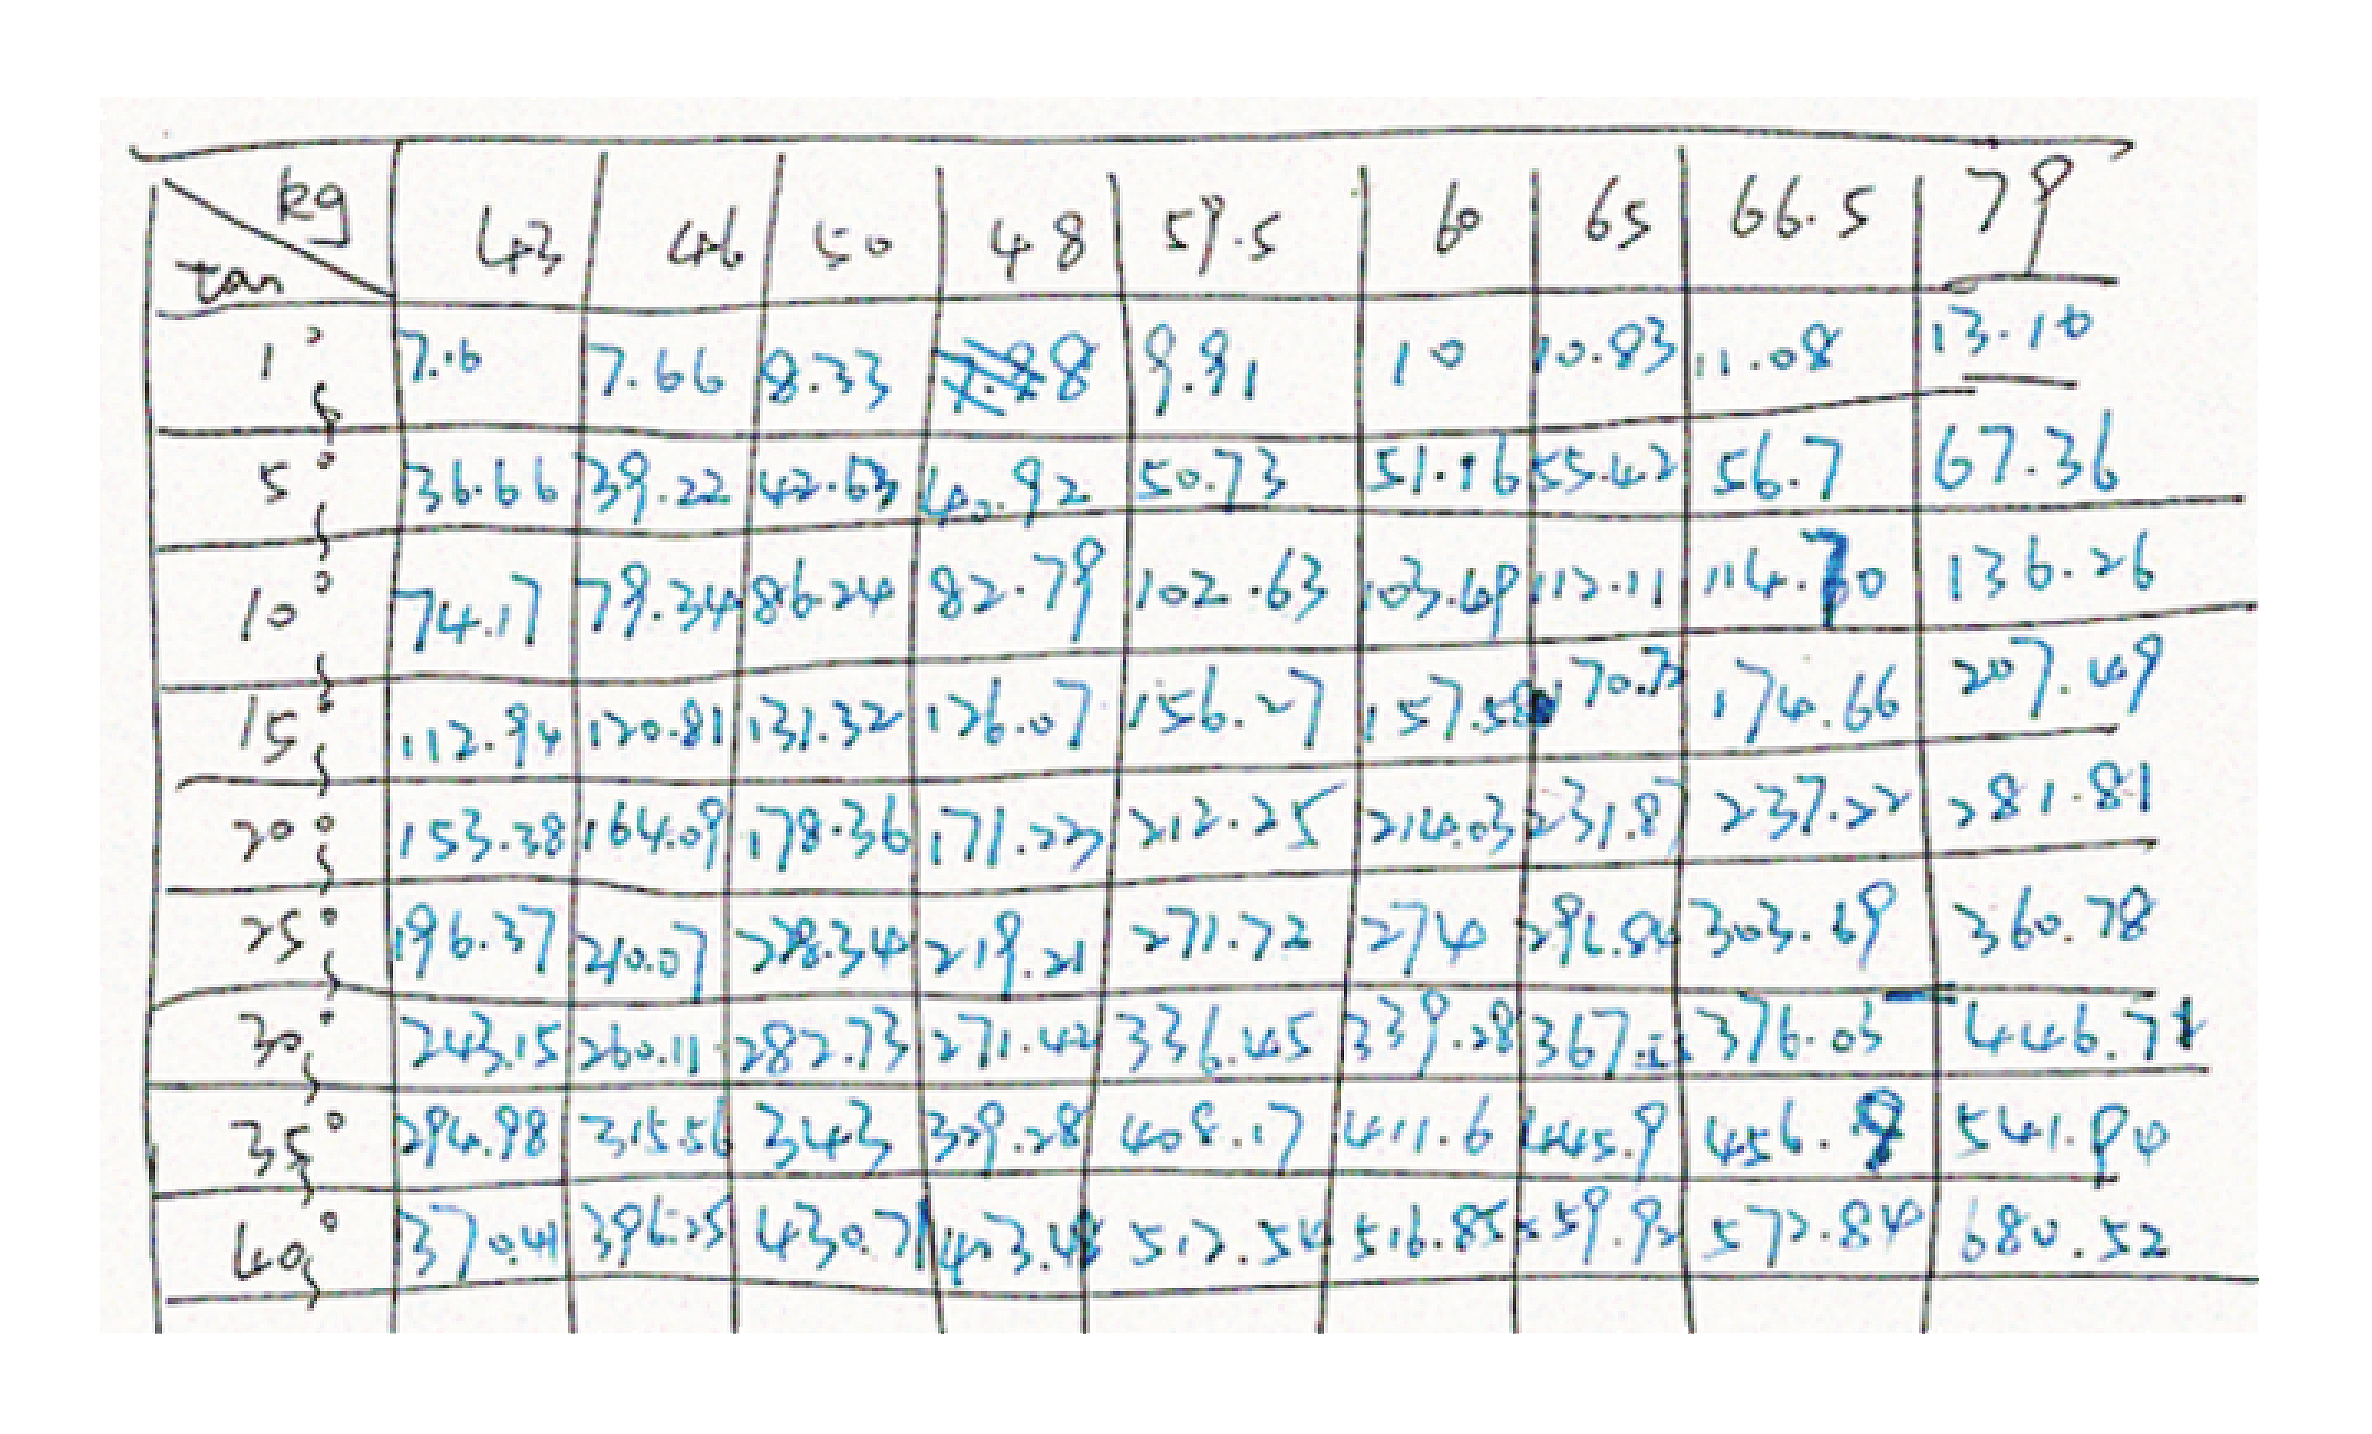 kg 43 46 50 48 59.5 60 65 66.5 79
tan
1° 7.6 7.66 8.33 8 9.91 10 10.83 11.08 13.16
5° 36.66 39.22 42.63 40.92 50.73 51.16 55.42 56.7 67.36
10° 74.17 79.34 86.24 82.79 102.63 103.49 112.11 114.70 136.26
15° 112.94 120.81 131.32 126.07 156.27 157.58 170.72 174.66 207.49
20° 153.38 164.09 178.36 171.23 212.25 214.03 231.87 237.22 281.81
25° 196.37 210.07 228.34 219.21 271.72 274 296.84 303.69 360.78
30° 243.15 260.11 282.73 271.42 336.45 339.28 376.03 446.71
35° 294.98 315.56 343 329.28 408.17 411.6 445.9 456.9 541.90
40° 370.41 396.25 430.71 413.48 512.54 516.85 559.92 572.84 680.52